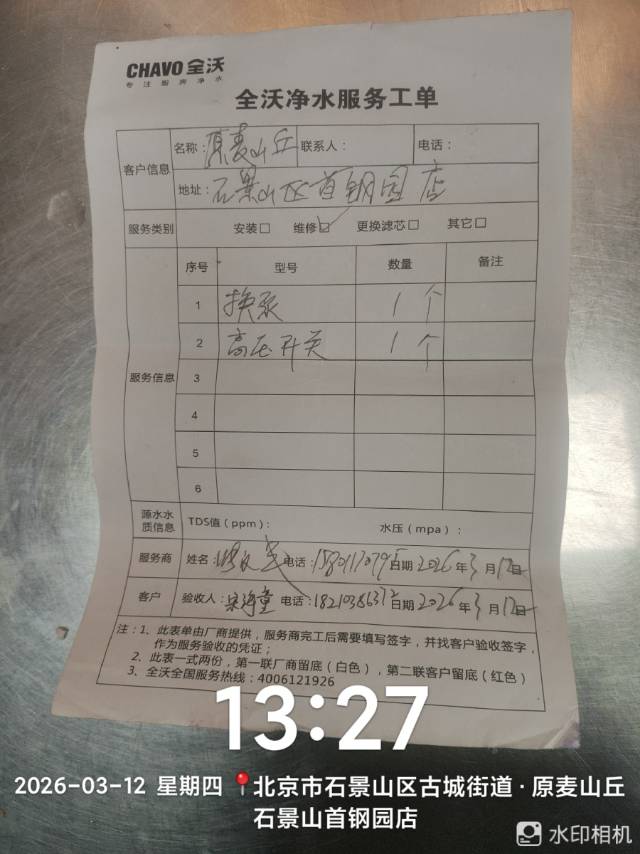 CHAVO 全沃
专注厨房净水
全沃净水服务工单
客户信息 名称：原麦山丘 联系人： 电话：
地址：石景山区首钢园店
服务类别 安装□ 维修☑ 更换滤芯□ 其它□
服务信息 序号 型号 数量 备注
1 换泵 1个
2 高压开关 1个
3
4
5
6
源水水质信息 TDS值（ppm）： 水压（mpa）：
服务商 姓名 电话： 日期 2026年3月12日
客户 验收人： 电话： 日期 2026年3月12日
注：1、此表单由厂商提供，服务商完工后需要填写签字，并找客户验收签字，
作为服务验收的凭证；
2、此表一式两份，第一联厂商留底（白色），第二联客户留底（红色）
3、全沃全国服务热线：4006121926
13:27
2026-03-12 星期四 北京市石景山区古城街道·原麦山丘
石景山首钢园店
水印相机